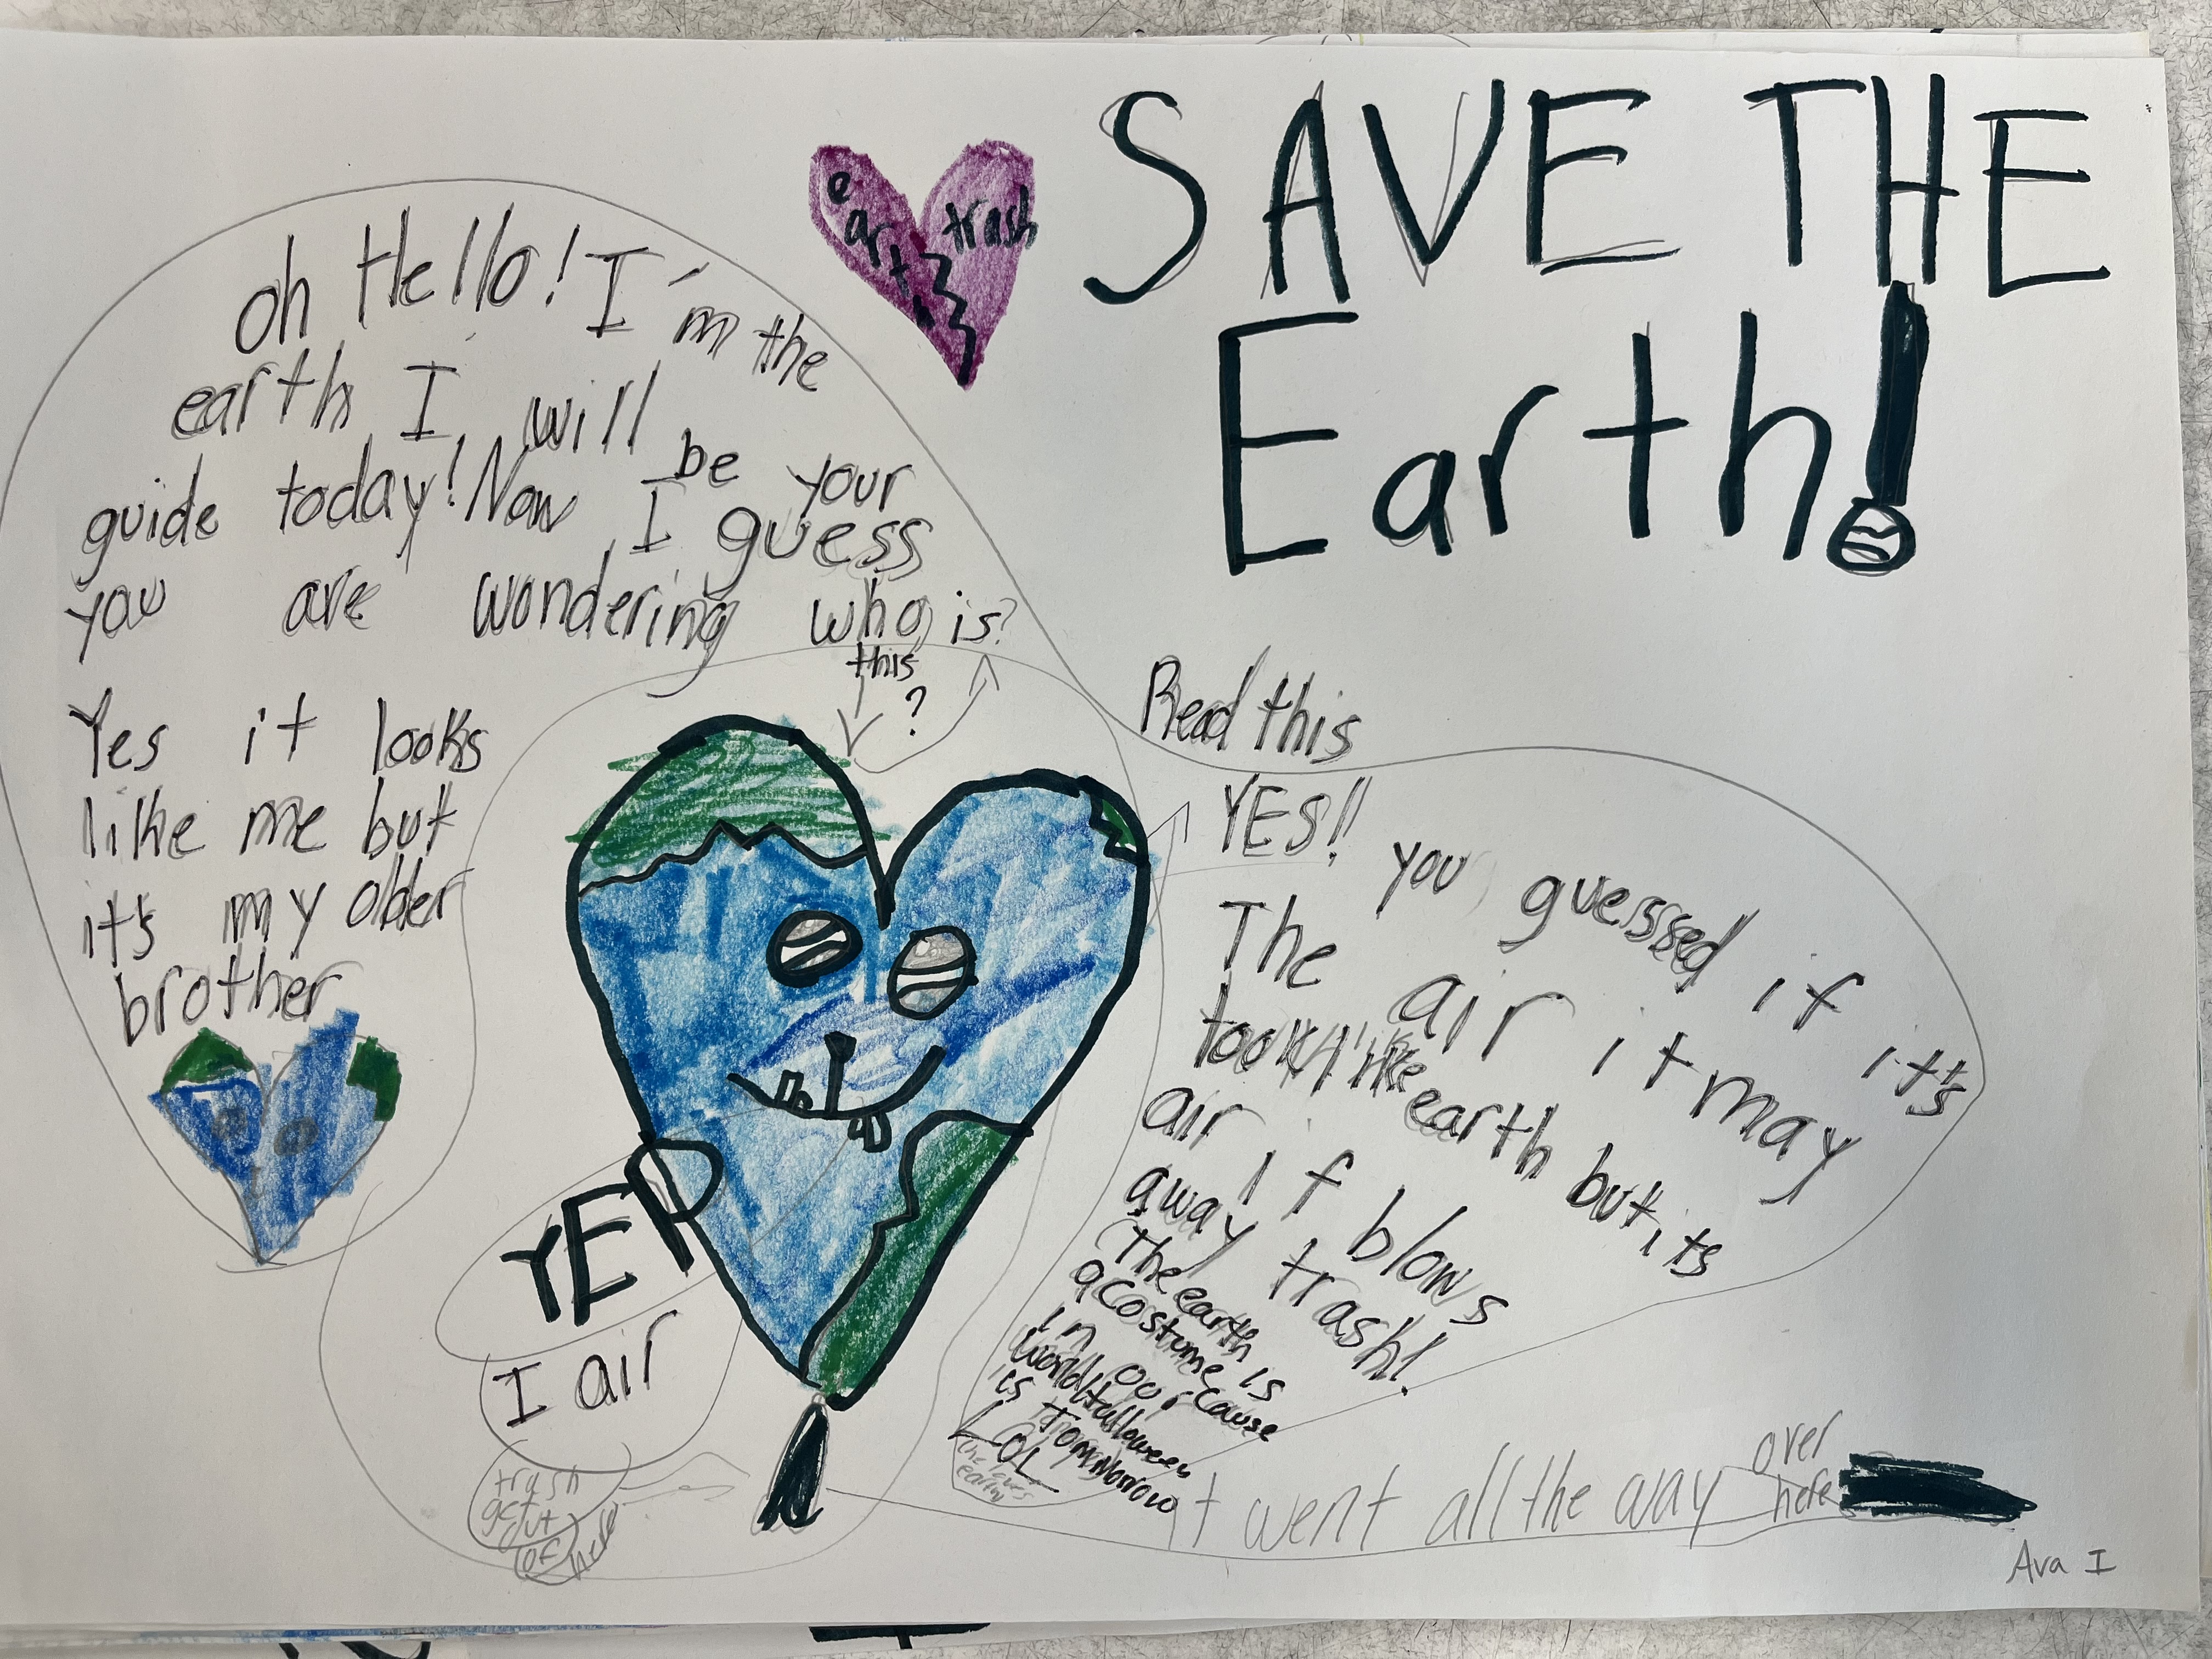 SAVE THE
Earth!
earth
trash
oh Hello! I'm the
earth I will be your
guide today! Now I guess
you are wondering who is?
this
?
Yes it looks
like me but
it's my older
brother
Read this
YES!! you guessed if it's
The air it may
look like earth but its
air if blows
away trash!
(The earth
acostume is
in our cause
world Halloween
is Tommorrow
LOL
earth)
YEP
I air
trash
get out
of here
it went all the way over
here
Ava I